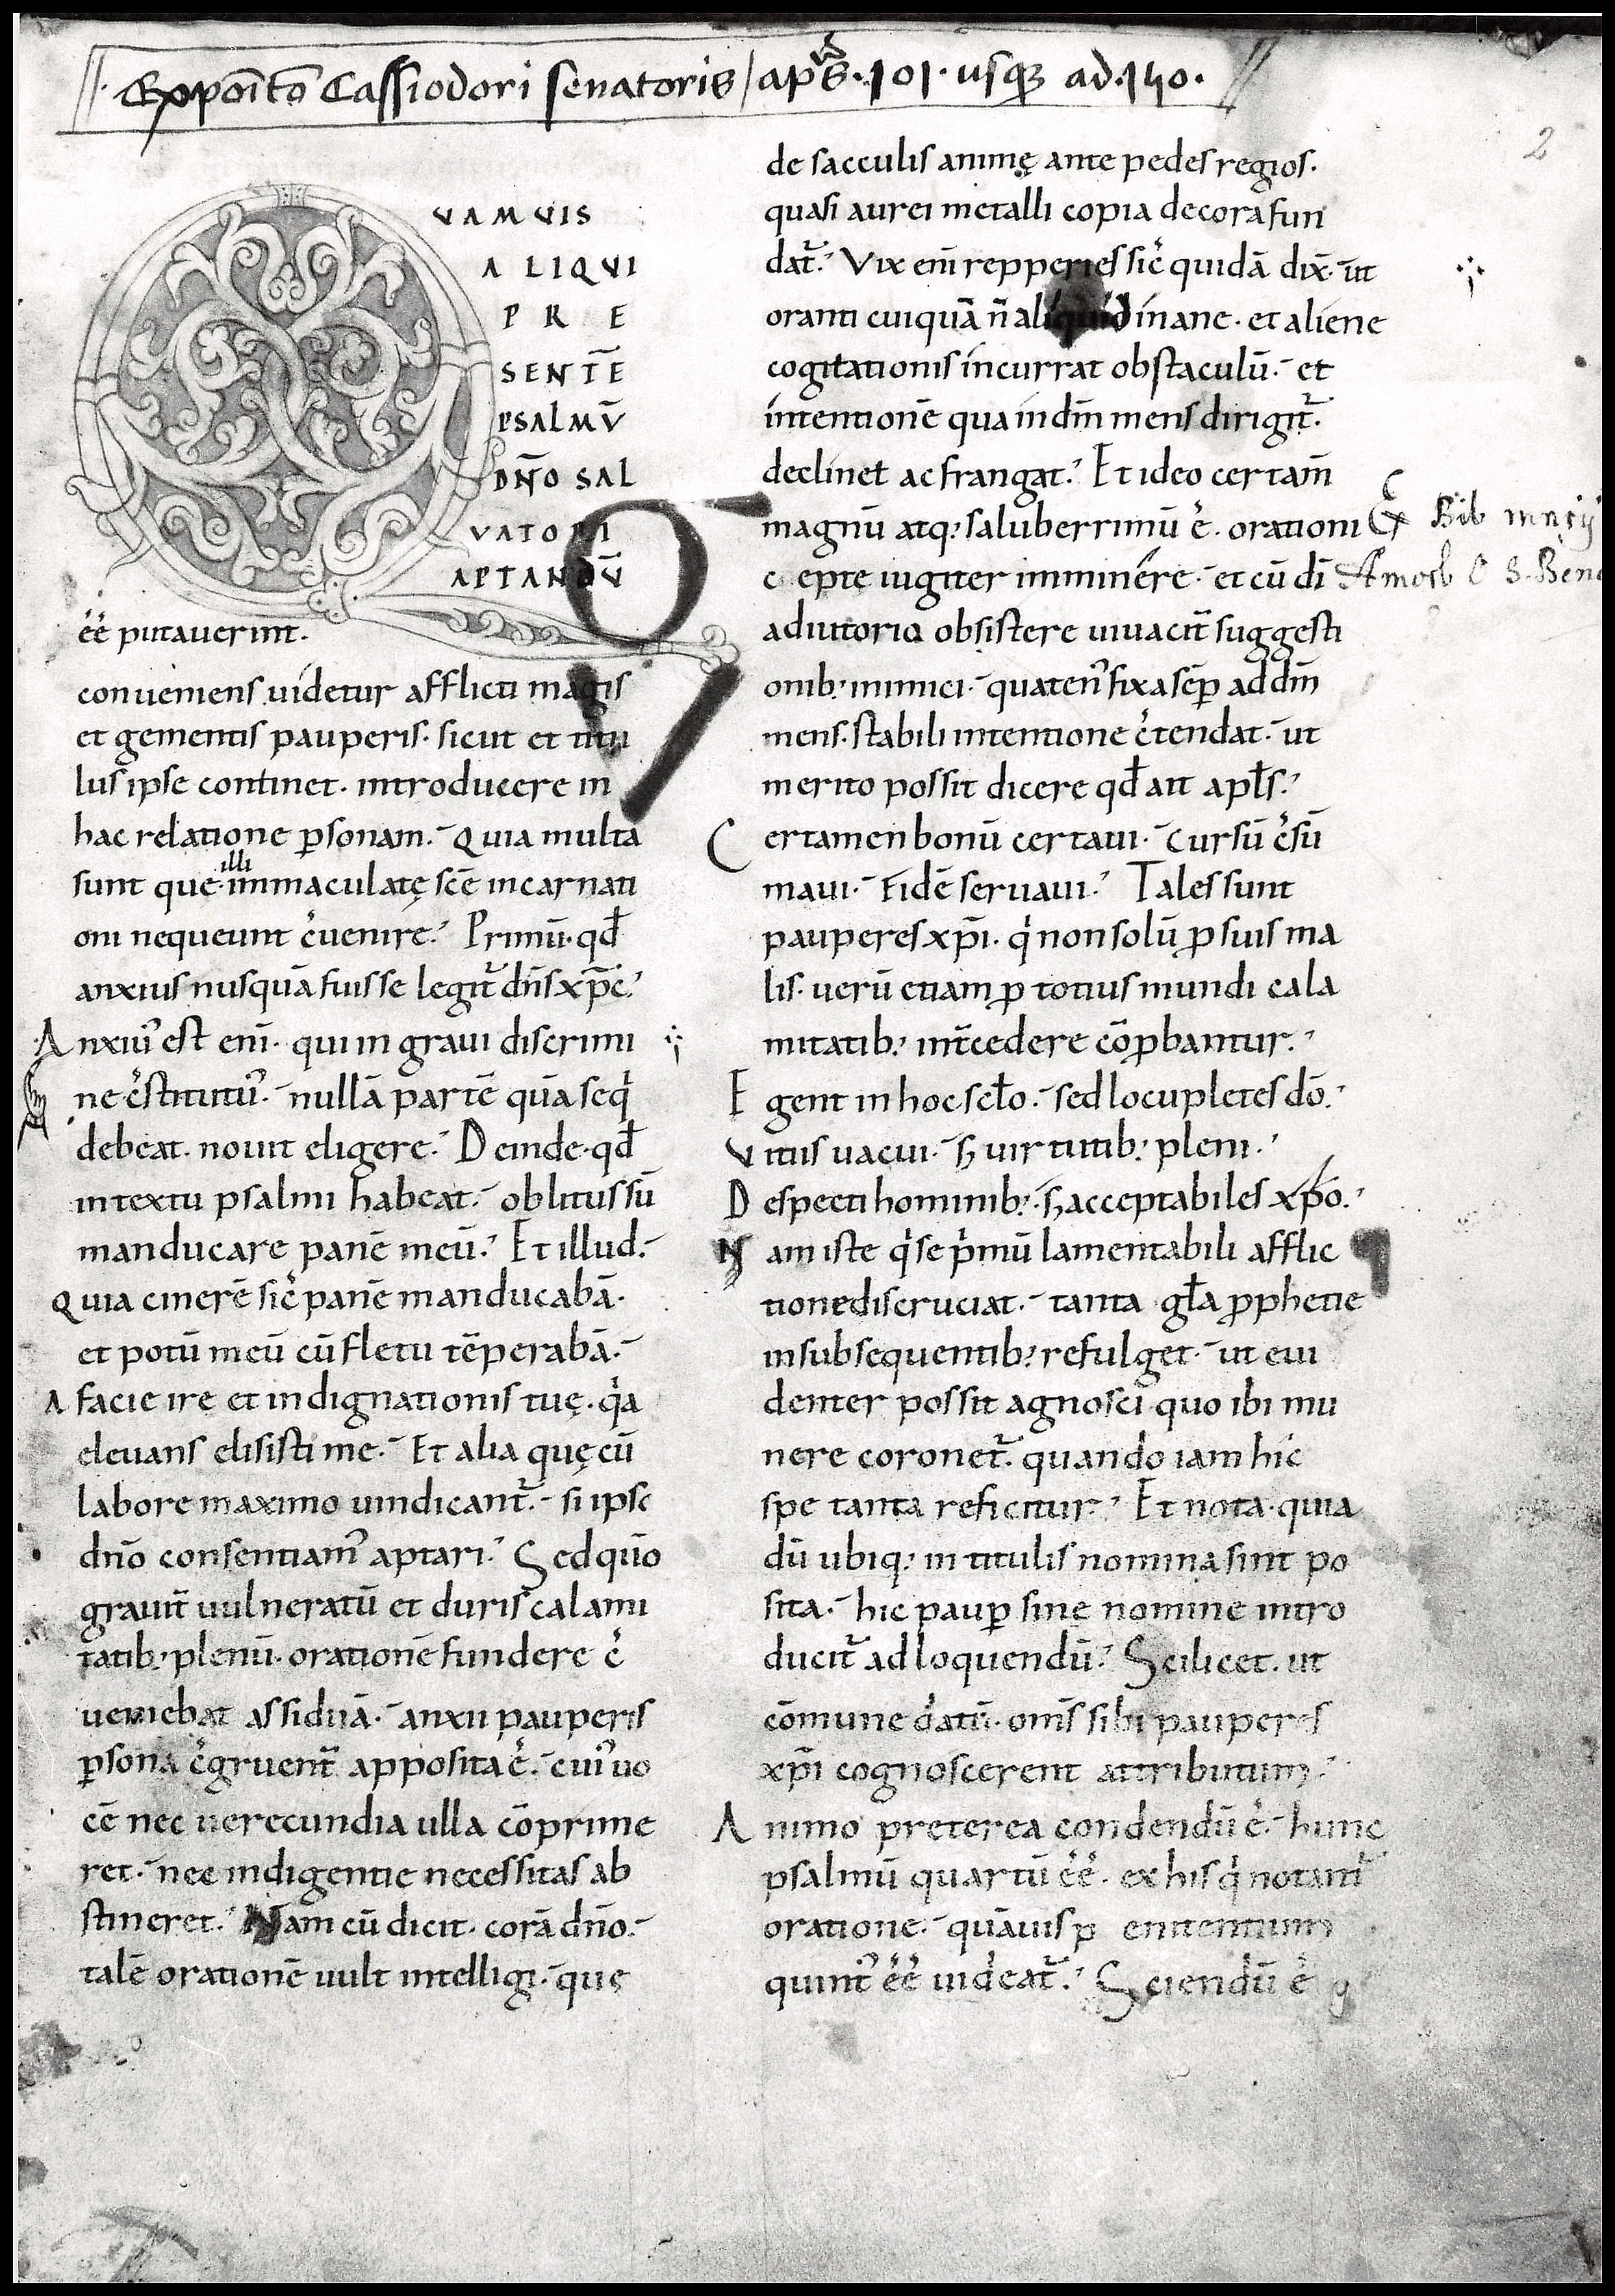 Exposĩto Cassiodori senatoris / a ps̃. 101. usq3 ad. 140.
2
QVAMVIS
ALIQVI
PRE
SENTẼ
PSALMṼ
DÑO SAL
VATORI
APTANDṼ
ēē putauerint.
conueniens uidetur afflicti magis
et gementis pauperis. sicut et titu
lus ipse continet. introducere in
hac relatione ꝑsonam. Quia multa
illi
sunt que immaculatę scē incarnati
oni nequeunt ꝯuenire. Primū. qđ
anxius nusquā fuisse legit᷑ dñs xp̄c.
Anxiꝰ est eni͂. qui in graui discrimi
ne ꝯstitutꝰ. nullā partē quā seq
debeat. nouit eligere. Deinde. qđ
in textu psalmi habeat. oblitus sū
manducare panē meū. Et illud.
Quia cinerē sic̓ panē manducabā.
et potū meū cū fletu tēperabā.
A facie ire et indignationis tuę. qͥa
eleuans elisisti me. Et alia quę cū
labore maximo uindicant᷑. si ipsi
dño consentiamꝰ aptari. Sed quō
grauit͛ uulneratū et duris calami
tatib; plenū. orationē fundere ꝯ
ueniebat assiduā. anxii pauperis
ꝑsona ꝯgruent͛ apposita ē. cuiꝰ uo
cē nec uerecundia ulla cōprime
ret. nec indigentie necessitas ab
stineret. Nam cū dicit. corā dño.
talē orationē uult intelligi. que
de sacculis animę ante pedes regios.
quasi aurei metalli copia decora fun
dat᷑. Vix eni͂ repperies sic̓ quidā dix̄. ut
oranti cuiquā ñ aliquid inane. et aliene
cogitationis incurrat obstaculū. et
intentionē qua in dm̄ mens dirigit᷑.
declinet ac frangat. Et ideo certam̄
magnū atq; saluberrimū ē. orationi
cepte iugiter imminére. et cū di͂
Ex Bib
Amorb O S. Bene
adiutorio obsistere uiuacit͛ suggesti
onib; inimici. quatenꝰ fixa sēꝑ ad dm̄
mens. stabili intentione ꝯtendat. ut
merito possit dicere qđ ait apl̄s.
Certamen bonū certaui. cursū ꝯsū
maui. fidē seruaui. Tales sunt
pauperes xp̄i. qͥ non solū ꝓ suis ma
lis. uerū etiam ꝓ totius mundi cala
mitatib; int͛cedere cōꝓbantur.
Egent in hoc scl̄o. sed locupletes dō.
Vitiis uacui. s; uirtutib; pleni.
Despecti hominib; s; acceptabiles xp̄o.
Nam iste qͥ se pͥmū lamentabili afflic
tione discruciat. tanta gl̄a ꝓphetie
in subsequentib; refulget. ut eui
denter possit agnosci quo ibi mu
nere coronet᷑. quando iam hic
spe tanta reficitur. Et nota. quia
dū ubiq; in titulis nomina sint po
sita. hic pauꝑ sine nomine intro
ducit᷑ ad loquendū. Scilicet. ut
cōmune datū. omīs sibi pauperes
xp̄i cognoscerent attributum.
Animo preterea condendū ē. hunc
psalmū quartū ēē. ex his qͥ notant᷑
oratione. quāuis penitentium
quintꝰ ēē uideat᷑. Sciendū ē